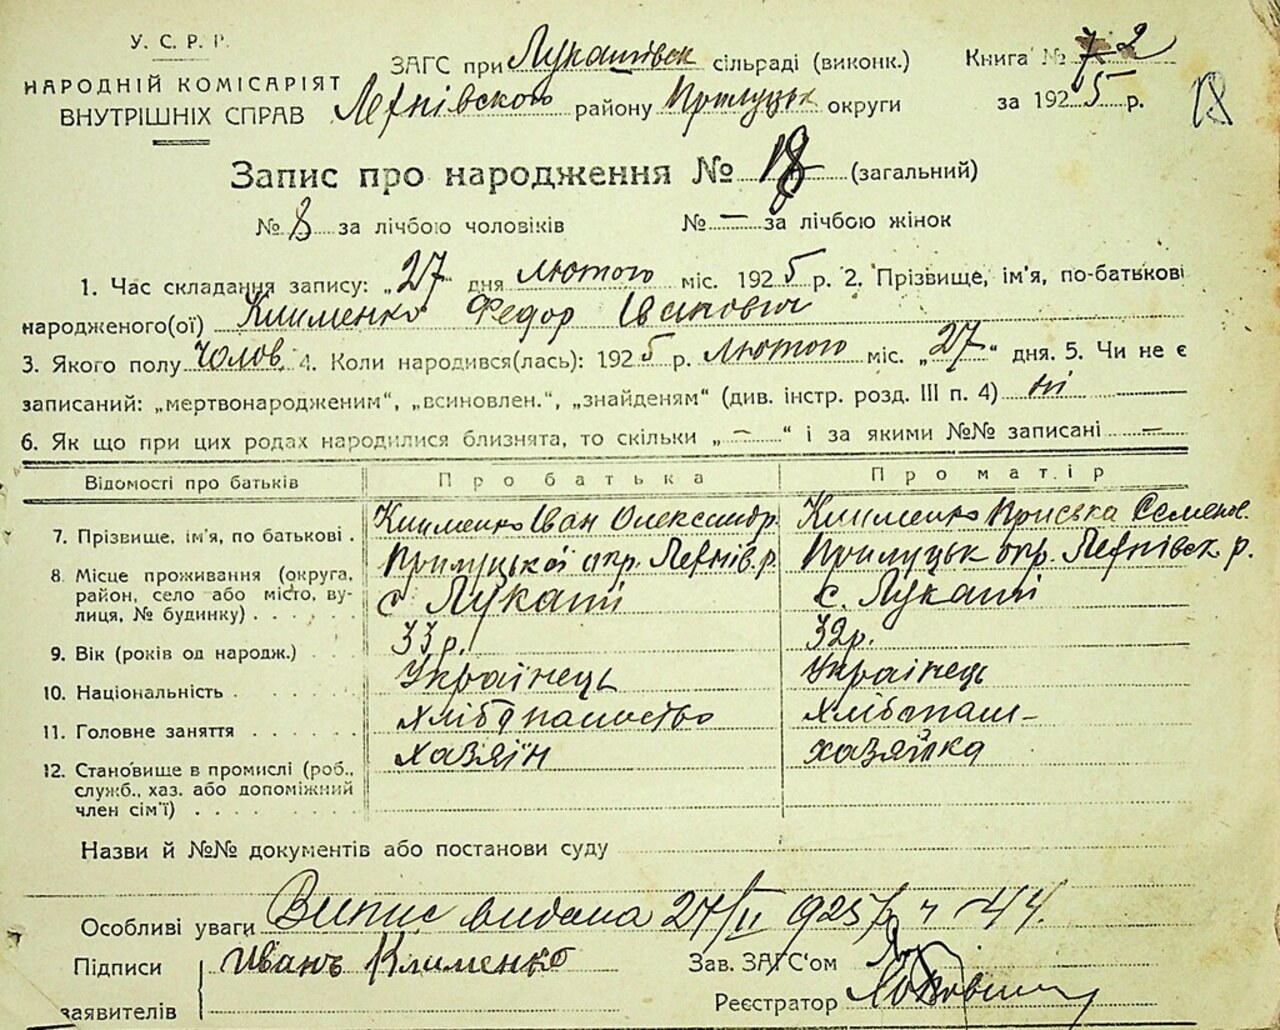 У. С. Р. Р.
НАРОДНІЙ КОМІСАРІЯТ
ВНУТРІШНІХ СПРАВ
ЗАГС при Лукашівск сільраді (виконк.) Книга № 2
району Прилуцьк округи за 1925 р.
18
Запис про народження № 18 (загальний)
№ 8 за лічбою чоловіків № — за лічбою жінок
1. Час складання запису: „27" дня лютого міс. 1925 р. 2. Прізвище, ім'я, по-батькові
народженого(ої) Клименко Федор Іванович
3. Якого полу Чолов. 4. Коли народився(лась): 1925 р. лютого міс. „27" дня. 5. Чи не є
записаний: „мертвонародженим", „всиновлен.", „знайденям" (див. інстр. розд. III п. 4) ні
6. Як що при цих родах народилися близнята, то скільки „—" і за якими №№ записані —
Відомості про батьків Про батька Про матір
7. Прізвище, ім'я, по батькові . Клименко Іван Олександр. Клименко Приська Семенов.
8. Місце проживання (округа, район, село або місто, вулиця, № будинку) . . . . Прилуцької окр. р. с Лукаші Прилуцьк окр. р. с. Лукаші
9. Вік (років од народж.) . . 33 р. 32 р.
10. Національність . . . . . Українець Українець
11. Головне заняття . . . . . хлібопашство хлібопаш-
12. Становище в промислі (роб., служб., хаз. або допоміжний член сім'ї) . . . . . хазяїн хазяйка
Назви й №№ документів або постанови суду
Особливі уваги Випис видана 27/II 925 р ч 44.
Підписи Иванъ Клименко Зав. ЗАГС'ом
заявителів Реєстратор